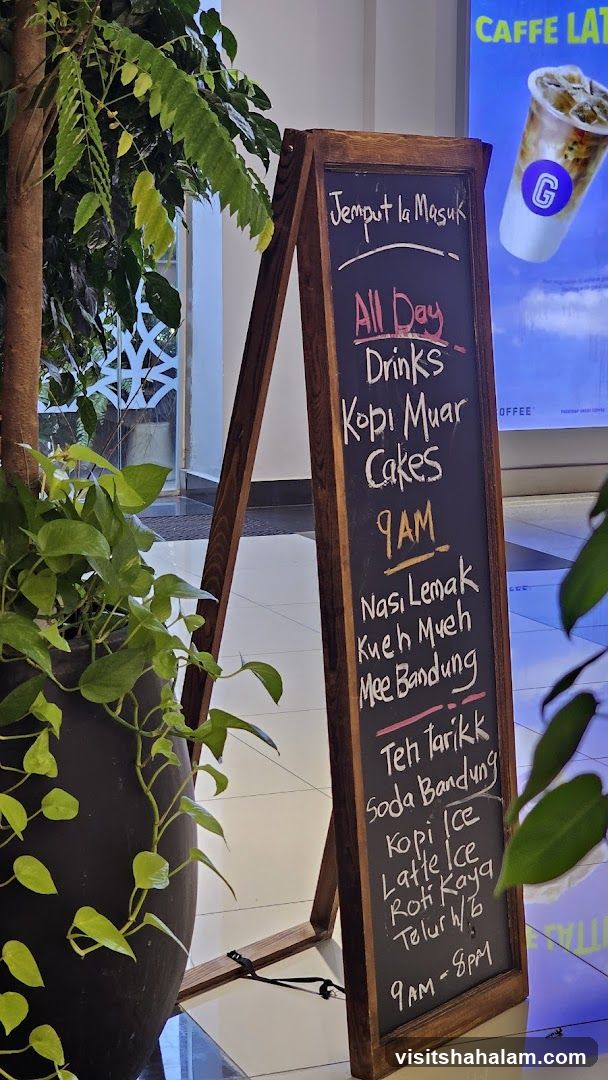 CAFFE LAT
G
Jemput la Masuk
All Day
Drinks
Kopi Muar
Cakes
9AM
Nasi Lemak
Kueh Mueh
Mee Bandung
Teh Tarikk
Soda Bandung
Kopi Ice
Latte Ice
Roti Kaya
Telur W/b
9AM - 8PM
COFFEE
visitshahalam.com